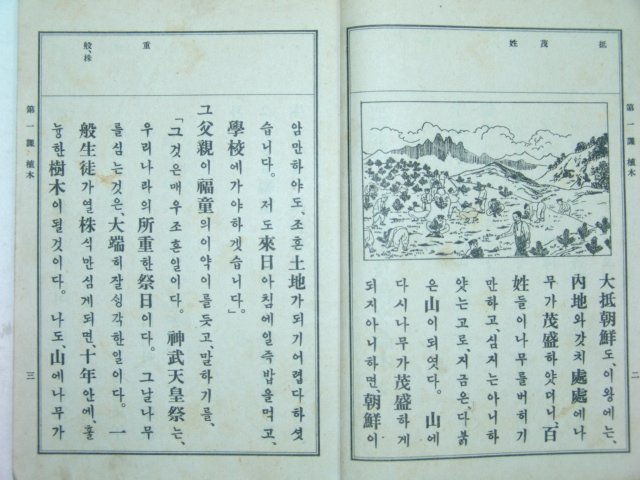 抵
茂
姓
第一課 植木
二
大抵朝鮮도、이왕에는、
內地와갓치處處에나
무가茂盛하얏더니、百
姓들이나무를버히기
만하고、심지는아니하
앗는고로、지금은、다붉
은山이되엿다。山에
다시나무가茂盛하게
되지아니하면、朝鮮이
重
般、株
암만하야도、조흔土地가되기어렵다하셧
습니다。저도來日아침에일즉밥을먹고、
學校에가야하겟습니다。」
그父親이福童의이약이를듯고、말하기를、
「그것은매우조흔일이다。神武天皇祭는、
우리나라의所重한祭日이다。그날나무
를심는것은、大端히잘싱각한일이다。一
般生徒가열株식만심게되면、十年안에、훌
늉한樹木이될것이다。나도、山에나무가
第一課 植木
三